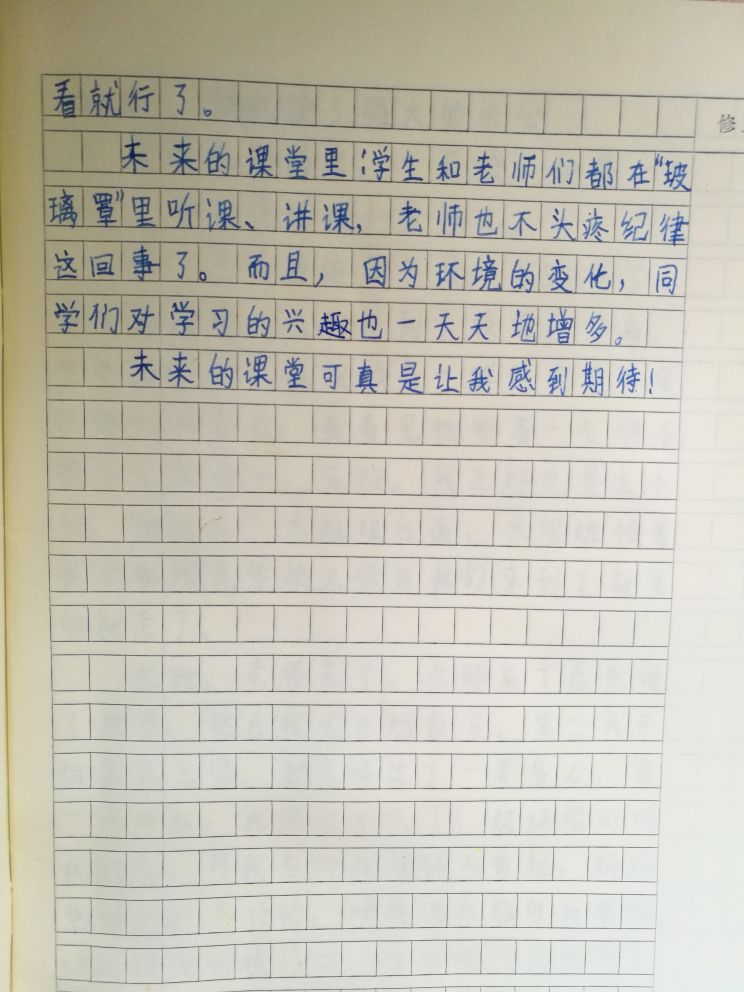 看就行了。
修
未来的课堂里,学生和老师们都在“玻
璃罩”里听课、讲课,老师也不头疼纪律
这回事了。而且,因为环境的变化,同
学们对学习的兴趣也一天天地增多。
未来的课堂可真是让我感到期待!